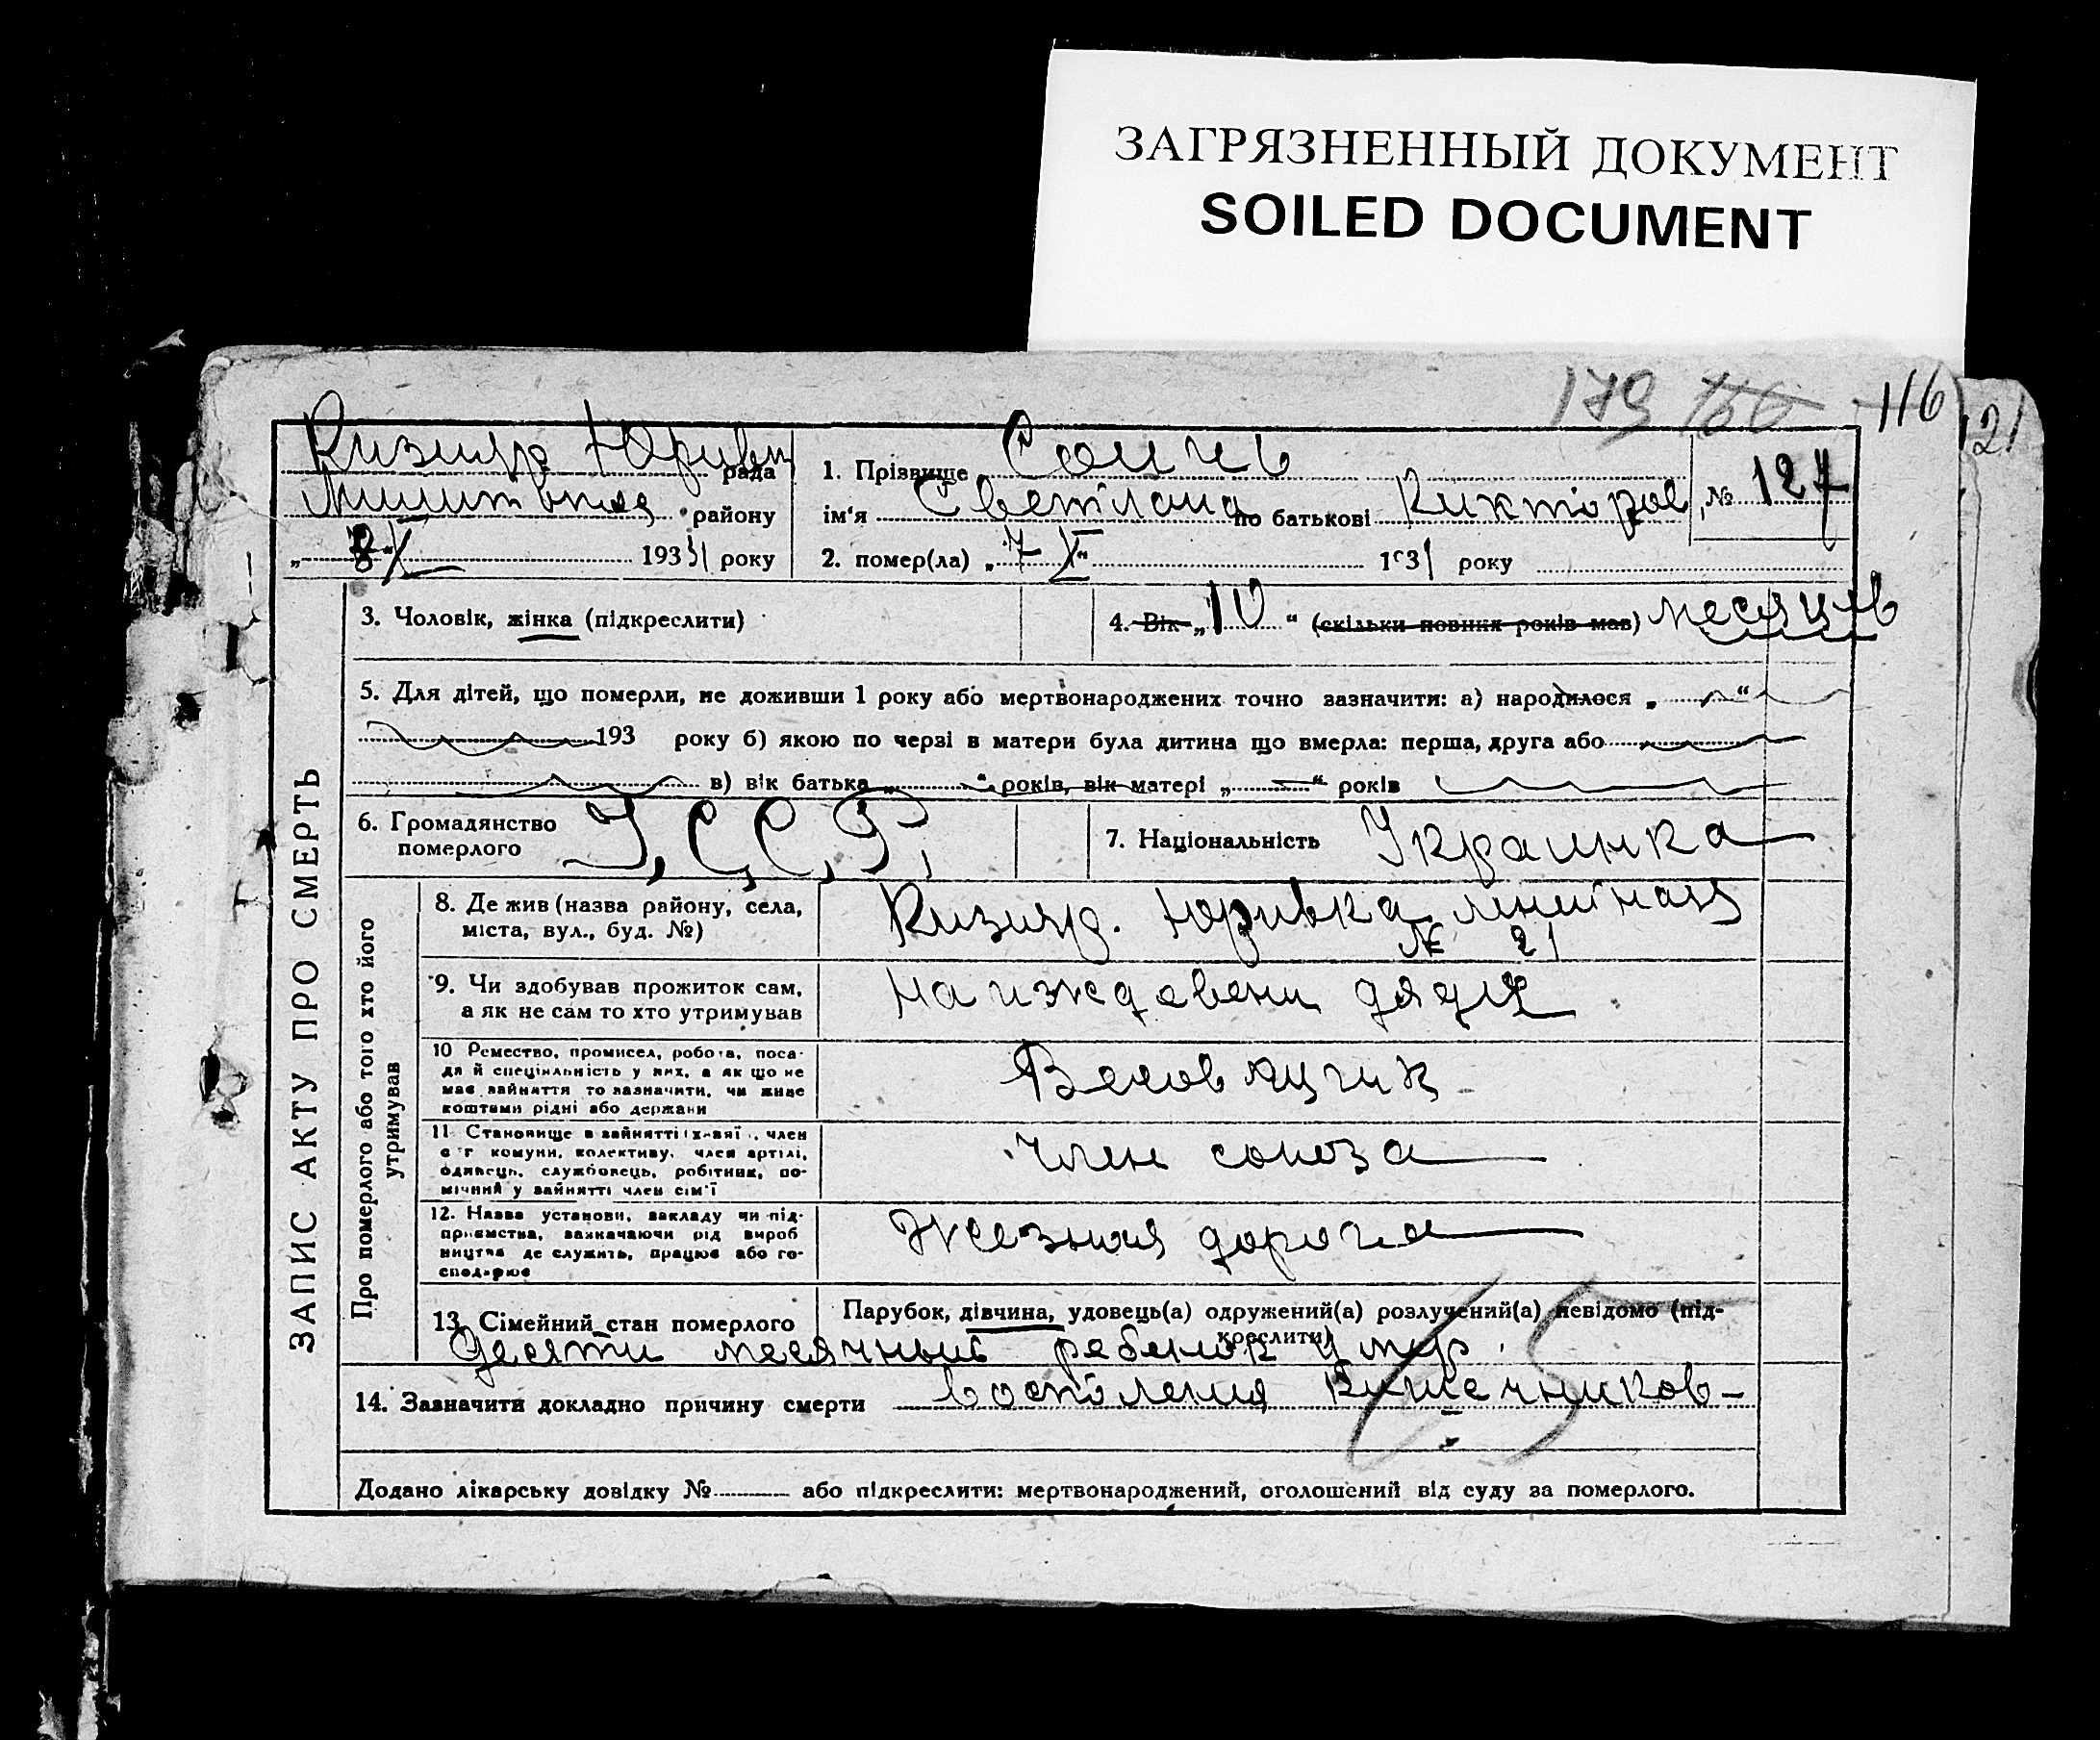 ЗАГРЯЗНЕННЫЙ ДОКУМЕНТ
SOILED DOCUMENT
179 116 121
рада
району
193 1 року
1. Прізвище
ім'я Светлана по батькові Виктиров
№ 127
2. помер(ла) „7 X“ 1931 року
ЗАПИС АКТУ ПРО СМЕРТЬ
3. Чоловік, жінка (підкреслити)
4. Вік „10“ (скільки повних років мав) месяцев
5. Для дітей, що померли, не доживши 1 року або мертвонароджених точно зазначити: а) народилося „ “
193 року б) якою по черзі в матери була дитина що вмерла: перша, друга або
в) вік батька „ “ років, вік матері „ “ років
6. Громадянство померлого У,С,С,Р,
7. Національність Украинка
Про померлого або того хто його утримував
8. Де жив (назва району, села, міста, вул., буд. №)
Юривка линейная
№ 21
9. Чи здобував прожиток сам, а як не сам то хто утримував
на иждевени дяди
10 Ремество, промисел, робота, посада й спеціяльність у них, а як що не має зайняття то зазначити, чи живе коштами рідні або держави
11 Становище в зайнятті член комуни, колективу, член артілі, одинець, службовець, робітник, помічний у зайнятті член сім'ї
член союза
12. Назва установи, закладу чи підприємства, зазначаючи рід виробництва де служить, працює або господарює
Жлезная дорога
13. Сімейний стан померлого
Парубок, дівчина, удовець(а) одружений(а) розлучений(а) невідомо (підкреслити)
Десяти месячный ребенок умер.
14. Зазначити докладно причину смерти восполения Кишечников
65
Додано лікарську довідку № або підкреслити: мертвонароджений, оголошений від суду за померлого.